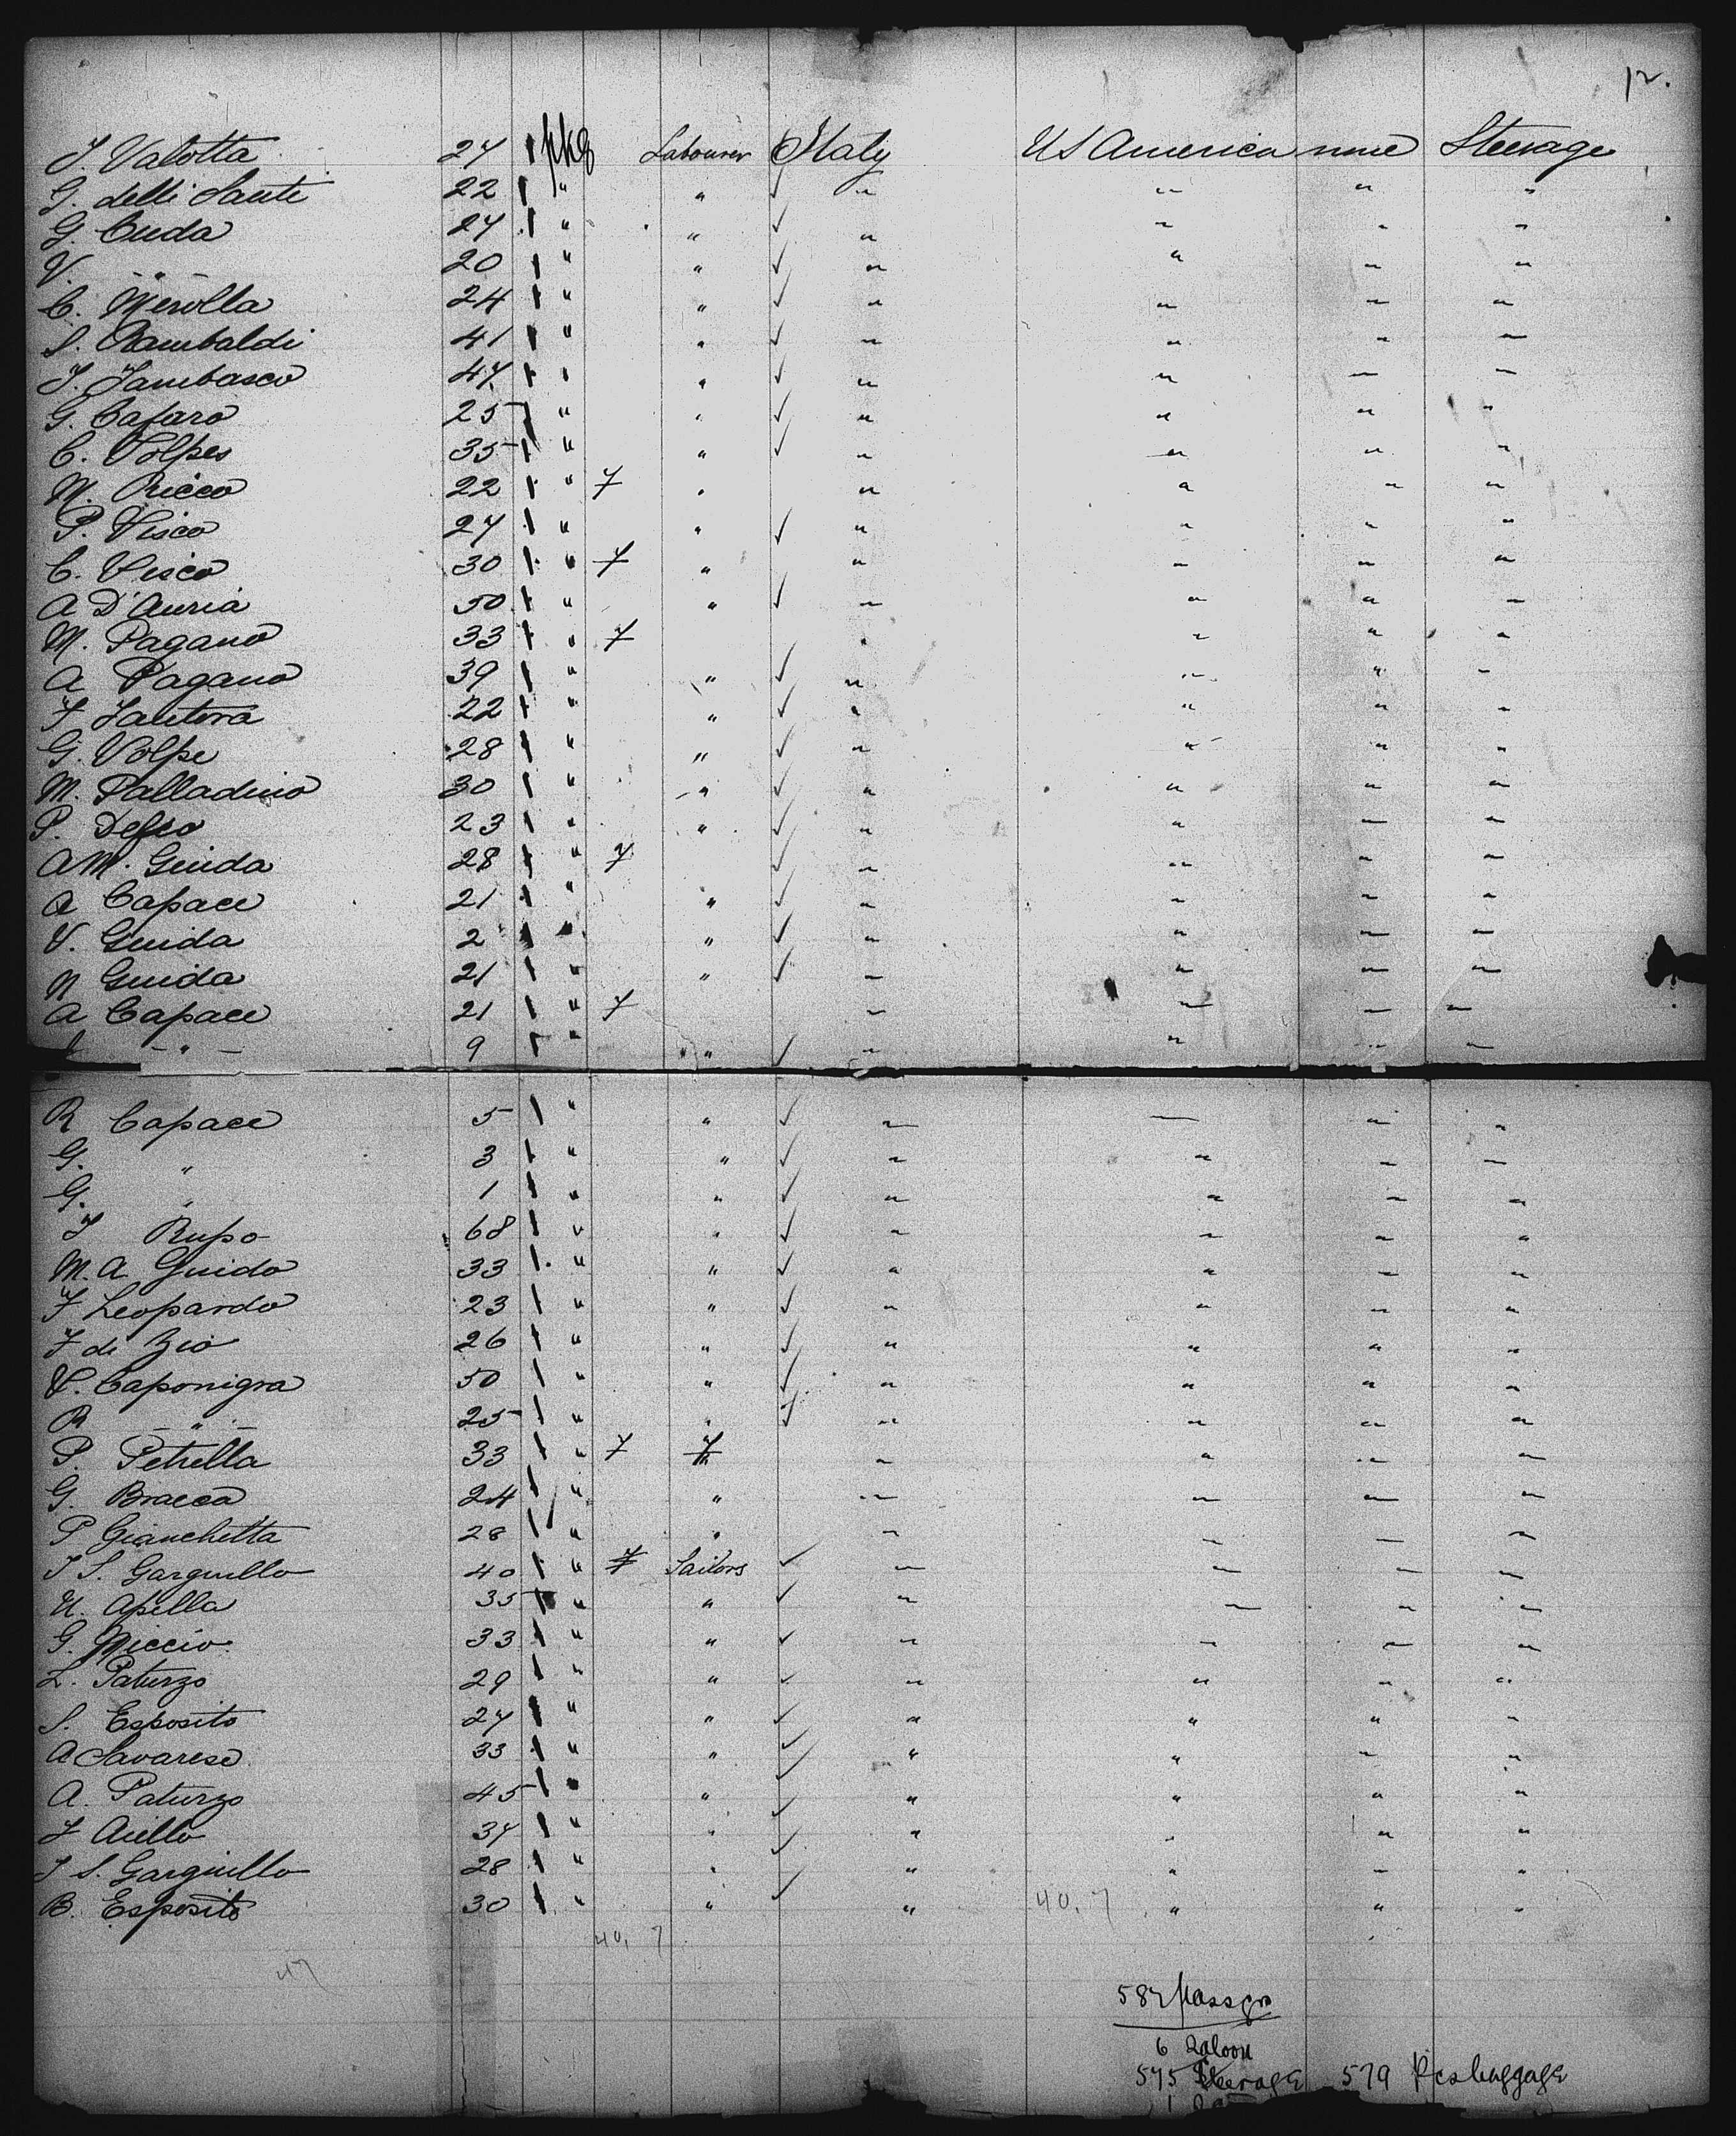 12.
J. Valotta 27 1 pkg Labourer Italy US America none Steerage
G. delli Santi 22 1 " " ✓ " " " "
G. Cuda 27 1 " " ✓ " " " "
V. - " - 20 1 " " ✓ " " " "
C. Merolla 24 1 " " ✓ " " " "
S. Rambaldi 41 1 " " ✓ " " " "
J. Jambasco 47 1 " " ✓ " " " "
G. Cafaro 25 1 " " ✓ " " " "
C. Volpes 35 1 " " ✓ " " " "
M. Ricco 22 1 " 7 " " " " "
P. Visco 27 1 " " ✓ " " " "
C. Visco 30 1 " 7 " " " " "
A D'Auria 50 1 " " ✓ " " " "
M. Pagano 33 1 " 7 " " " "
A Pagano 39 1 " " ✓ " " " "
F Jantora 22 1 " " ✓ " " " "
G. Volpe 28 1 " " ✓ " " " "
M. Palladino 30 1 " " ✓ " " " "
P. Defeo 23 1 " " ✓ " " " "
A M. Guida 28 1 " 7 ✓ " " " "
A Capace 21 1 " " ✓ " " " "
V. Guida 2 1 " " ✓ " " " "
N Guida 21 1 " " ✓ " " " "
A Capace 21 1 " 7 " " " "
- " - 9 1 " " ✓ " " " "
R Capace 5 1 " " ✓ " " " "
G. " 3 1 " " ✓ " " " "
G. " 1 1 " " ✓ " " " "
F Rupo 68 1 " " ✓ " " " "
M. A Guida 33 1 " " ✓ " " " "
F Leopardo 23 1 " " ✓ " " " "
F di Zio 26 1 " " ✓ " " " "
V. Caponigra 50 1 " " ✓ " " " "
R - " - 25 1 " " ✓ " " " "
P. Petrella 33 1 " 7 7 " " " "
G. Bracca 24 1 " " " " " "
P Gianchetta 28 1 " " " " " "
J S. Garguillo 40 1 " 7 Sailors ✓ " " " "
U. Apella 35 1 " " ✓ " " " "
G. Miccio 33 1 " " ✓ " " " "
L. Paturzo 29 1 " " ✓ " " " "
S. Esposito 27 1 " " ✓ " " " "
A Savarese 33 1 " " ✓ " " " "
A. Paturzo 45 1 " " ✓ " " " "
F Aiello 37 1 " " ✓ " " " "
J S. Garguillo 28 1 " " ✓ " " " "
B. Esposito 30 1 " " ✓ " 40. 7 " " "
40. 7
47
587 passgrs
6 Saloon
575 Steerage 579 Pcs baggage
1